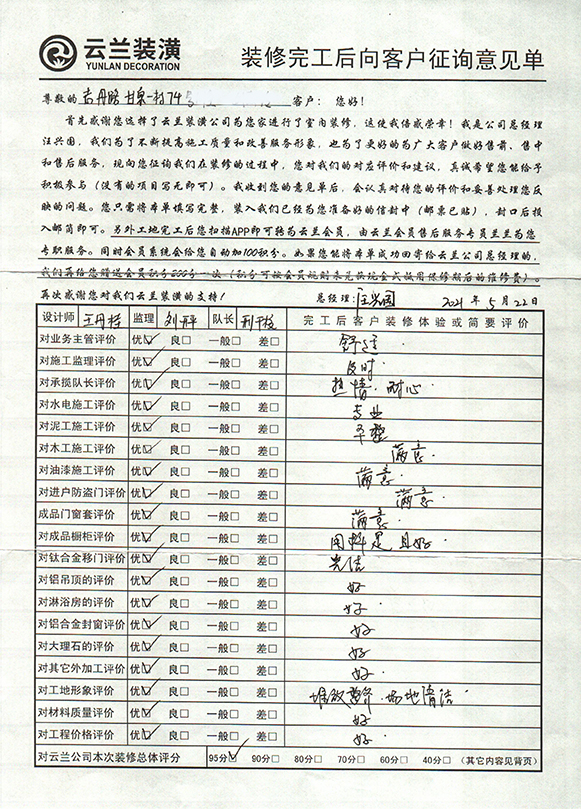 云兰装潢
YUNLAN DECORATION
装修完工后向客户征询意见单
尊敬的 吉舟路甘泉一村74号 客户: 您好!
首先感谢您选择了云兰装潢公司为您家进行了室内装修，这使我倍感荣幸！我是公司总经理
汪兴国，我们为了不断提高施工质量和改善服务形象，也为了更好的为广大客户做好售前、售中
和售后服务，现向您征询我们在装修的过程中，您对我们的对应评价和建议，真诚希望您能给予
积极参与（没有的项目写无即可）。我收到您的意见单后，会认真对待您的评价和妥善处理您反
映的问题。您只需将本单填写完整，装入我们已经为您准备好的信封中（邮票已贴），封口后投
入邮筒即可。另外工地完工后您扫描APP即可转为云兰会员，由云兰会员售后服务专员兰兰为您
专职服务。同时会员系统会给您自动加100积分。如果您能将本单成功回寄给云兰公司总经理的，
我们再给您赠送会员积分200分一次（积分可按会员规则来兑换现金或抵用保修期后的维修费）。
再次感谢您对我们云兰装潢的支持！ 总经理：汪兴国 2021年5月22日
设计师 王丹桂 监理 刘辉 队长 完工后客户装修体验或简要评价
对业务主管评价 优☑ 良□ 一般□ 差□ 舒适.
对施工监理评价 优☑ 良□ 一般□ 差□ 及时.
对承揽队长评价 优☑ 良□ 一般□ 差□ 热情.耐心.
对水电施工评价 优☑ 良□ 一般□ 差□ 专业
对泥工施工评价 优☑ 良□ 一般□ 差□ 平整
对木工施工评价 优☑ 良□ 一般□ 差□ 满意.
对油漆施工评价 优☑ 良□ 一般□ 差□ 满意.
对进户防盗门评价 优☑ 良□ 一般□ 差□ 满意.
成品门窗套评价 优☑ 良□ 一般□ 差□ 满意.
对成品橱柜评价 优☑ 良□ 一般□ 差□ 用料足且好.
对钛合金移门评价 优☑ 良□ 一般□ 差□ 光洁
对铝吊顶的评价 优☑ 良□ 一般□ 差□ 好.
对淋浴房的评价 优☑ 良□ 一般□ 差□ 好.
对铝合金封窗评价 优☑ 良□ 一般□ 差□ 好.
对大理石的评价 优☑ 良□ 一般□ 差□ 好.
对其它外加工评价 优☑ 良□ 一般□ 差□ 好.
对工地形象评价 优☑ 良□ 一般□ 差□ 堆放整齐.场地清洁
对材料质量评价 优☑ 良□ 一般□ 差□ 好.
对工程价格评价 优☑ 良□ 一般□ 差□ 好.
对云兰公司本次装修总体评分 95分☑ 90分□ 80分□ 70分□ 60分□ 40分□ （其它内容见背页）